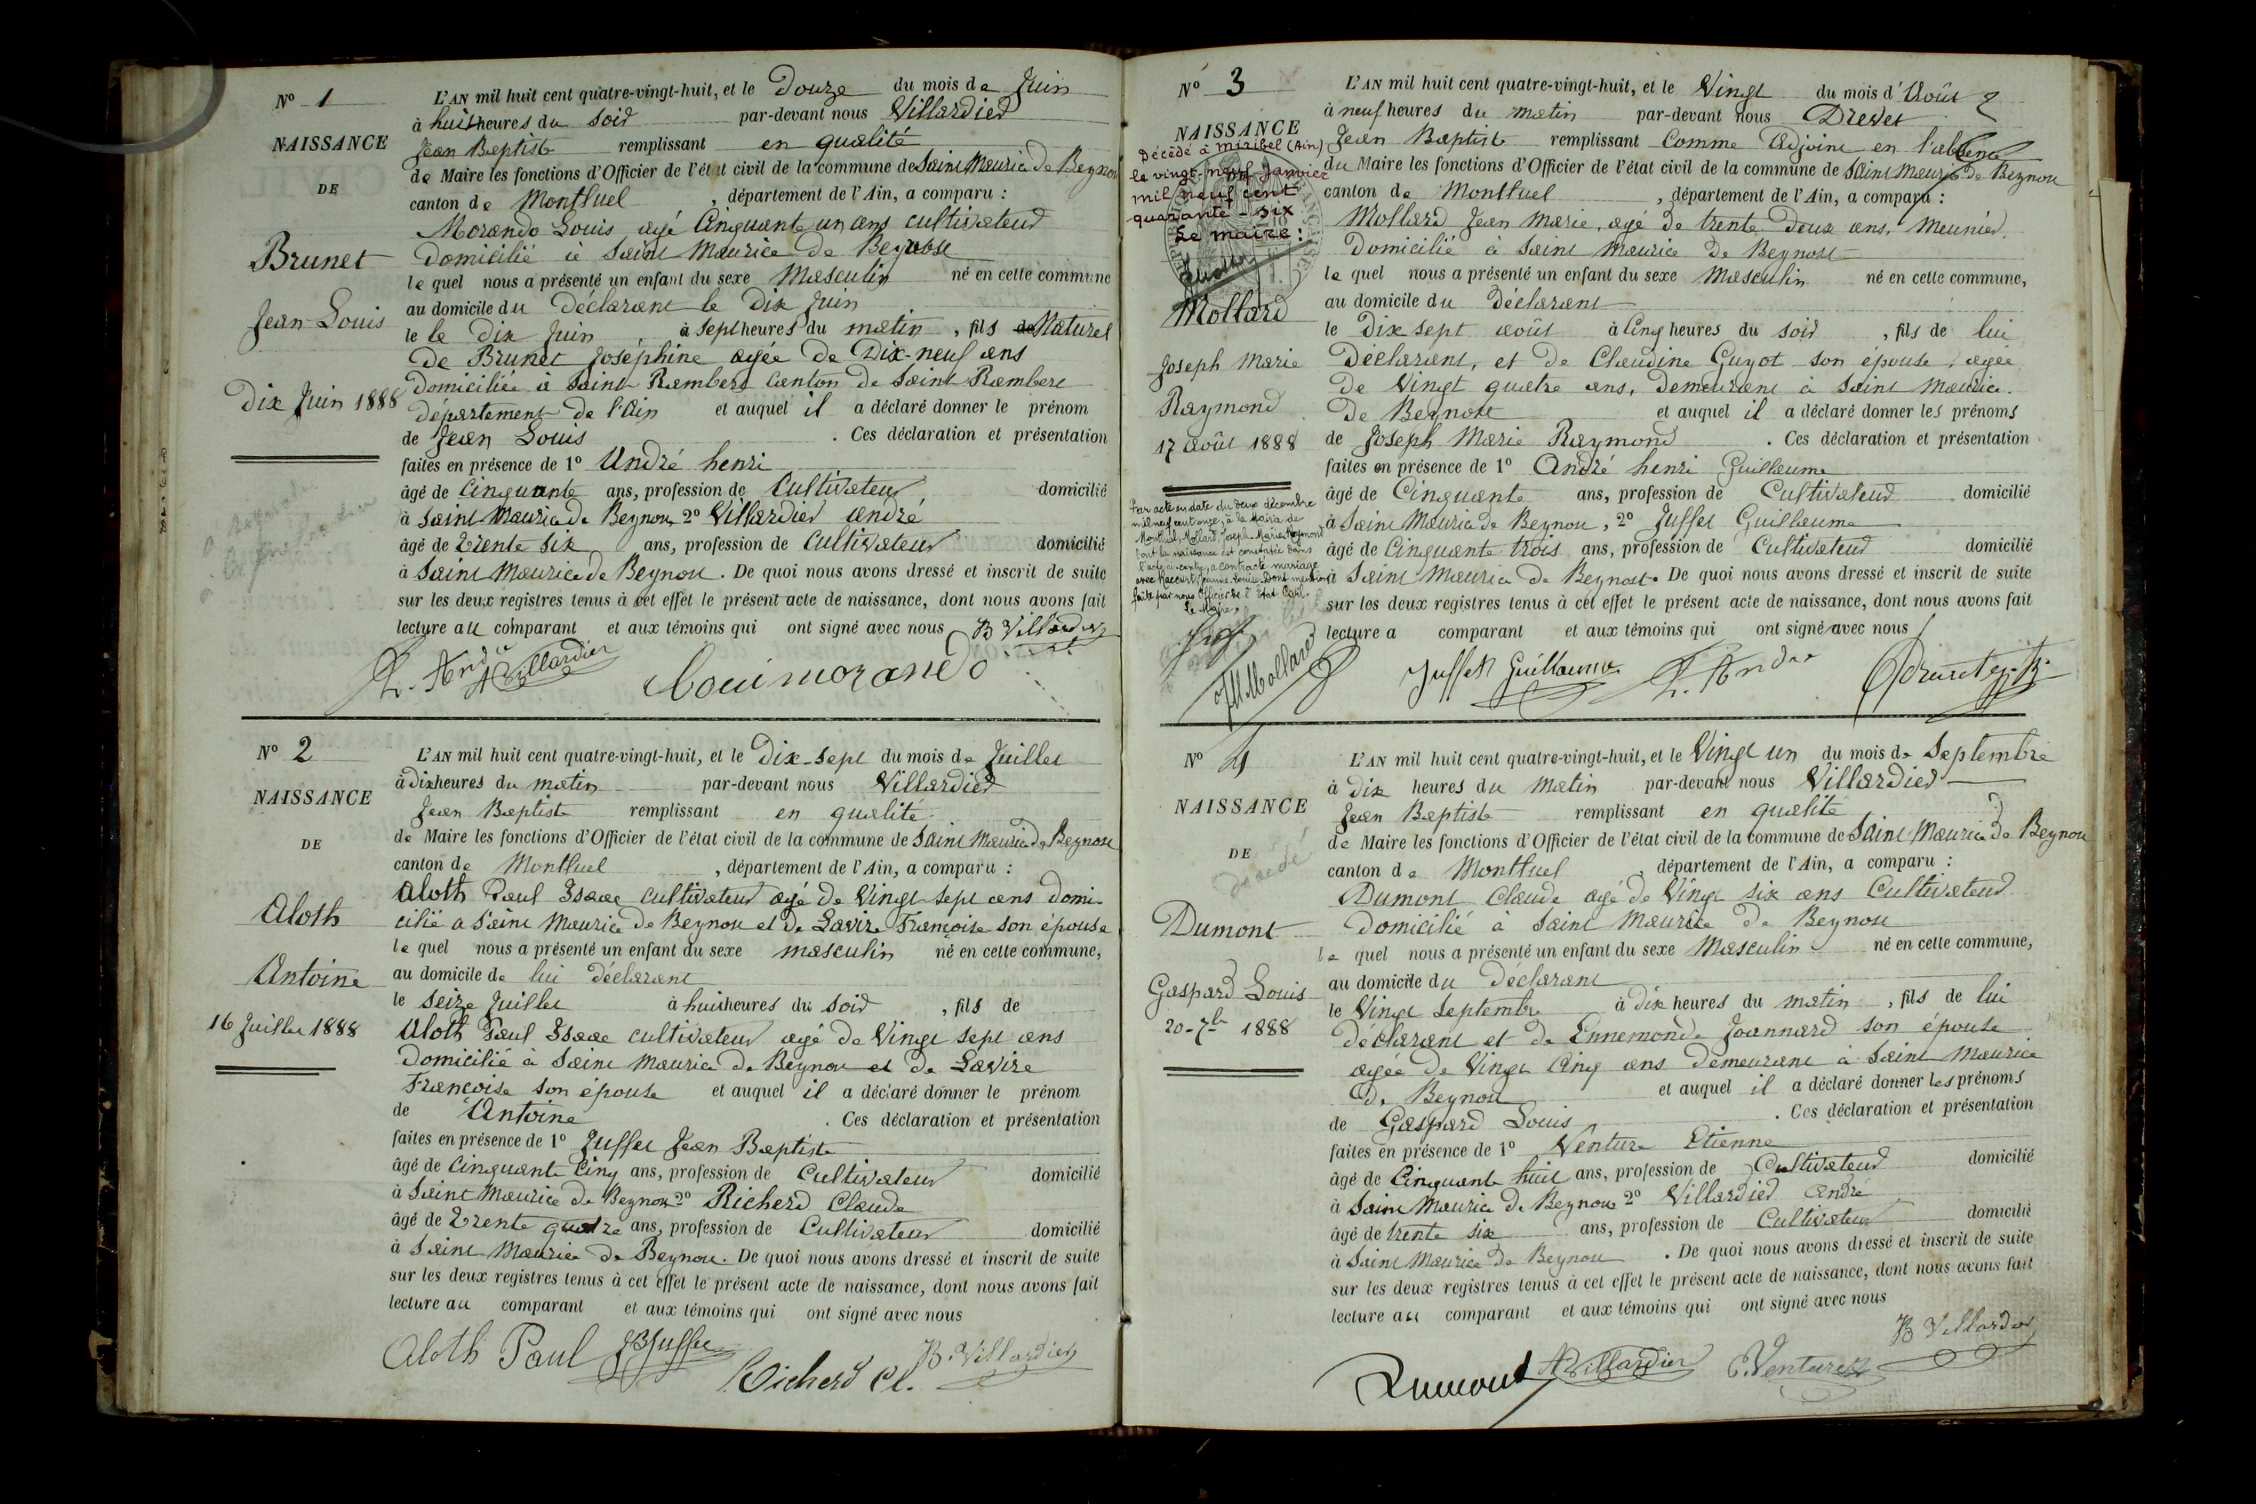 N° 1
NAISSANCE
DE
Brunet
Jean Louis
Dix Juin 1888
L'AN mil huit cent quatre-vingt-huit, et le Douze du mois de Juin
à huit heures du soir par-devant nous Villardier
Jean Baptiste remplissant en qualité
de Maire les fonctions d'Officier de l'état civil de la commune de Saint Maurice de Beynost
canton de Montluel, département de l'Ain, a comparu :
Morando Louis, agé Cinquante un ans cultivateur
domicilié à Saint Maurice de Beynost
lequel nous a présenté un enfant du sexe Masculin né en cette commune
au domicile du Déclarant le Dix Juin
le le Dix Juin à sept heures du matin, fils de Naturel
De Brunet Joséphine agée de Dix-neuf ans
domiciliée à Saint Rambert Canton de Saint Rambert
département de l'Ain et auquel il a déclaré donner le prénom
de Jean Louis. Ces déclaration et présentation
faites en présence de 1° André henri
âgé de Cinquante ans, profession de Cultivateur domicilié
à Saint Maurice de Beynost 2° Villardier andré
âgé de Trente six ans, profession de Cultivateur domicilié
à Saint Maurice de Beynost. De quoi nous avons dressé et inscrit de suite
sur les deux registres tenus à cet effet le présent acte de naissance, dont nous avons fait
lecture au comparant et aux témoins qui ont signé avec nous B Villardier
A Villardier
Loui morando
N° 2
NAISSANCE
DE
Aloth
Antoine
16 Juillet 1888
L'AN mil huit cent quatre-vingt-huit, et le Dix-sept du mois de Juillet
à dix heures du matin par-devant nous Villardier
Jean Baptiste remplissant en qualité
de Maire les fonctions d'Officier de l'état civil de la commune de Saint Maurice de Beynost
canton de Montluel, département de l'Ain, a comparu :
Aloth Paul Isaac cultivateur agé de Vingt sept ans domi-
cilié a Saint Maurice de Beynost et de Lavire Françoise son épouse
lequel nous a présenté un enfant du sexe masculin né en cette commune,
au domicile de lui déclarant
le seize Juillet à huit heures du soir, fils de
Aloth Paul Isaac cultivateur agé de Vingt sept ans
Domicilié à Saint Maurice de Beynost et de Lavire
Françoise son épouse et auquel il a déclaré donner le prénom
de Antoine. Ces déclaration et présentation
faites en présence de 1° Juffet Jean Baptiste
âgé de Cinquante Cinq ans, profession de Cultivateur domicilié
à Saint Maurice de Beynost 2° Richerd Claude
âgé de Trente quatre ans, profession de Cultivateur domicilié
à Saint Maurice de Beynost. De quoi nous avons dressé et inscrit de suite
sur les deux registres tenus à cet effet le présent acte de naissance, dont nous avons fait
lecture au comparant et aux témoins qui ont signé avec nous
Aloth Paul JB Juffet
Richerd Cl. B. Villardier
N° 3
NAISSANCE
Décédé à Miribel (Ain)
le vingt-neuf Janvier
mil neuf cent
quarante-six
Le maire :
Mollard
Joseph Marie
Raymond
17 août 1888
Par acte en date du deux décembre
mil neuf cent onze, à la Mairie de
Montluel, Mollard Joseph Marie Raymond
dont la naissance est constatée dans
l'acte ci-contre, a contracté mariage
avec Jeanne Louise. Dont mention
faite par nous Officier de l'état Civil.
Le Maire,
L'AN mil huit cent quatre-vingt-huit, et le Vingt du mois d'Août
à neuf heures du matin par-devant nous Drevet
Jean Baptiste remplissant Comme Adjoint en l'absence
du Maire les fonctions d'Officier de l'état civil de la commune de Saint Maurice de Beynost
canton de Montluel, département de l'Ain, a comparu :
Mollard Jean Marie, agé de trente deux ans, Meunier
Domicilié à Saint Maurice de Beynost
lequel nous a présenté un enfant du sexe Masculin né en cette commune,
au domicile du Déclarant
le Dix sept août à Cinq heures du soir, fils de lui
Déclarant, et de Claudine Guyot son épouse, agée
De Vingt quatre ans, demeurant à Saint Maurice
De Beynost et auquel il a déclaré donner les prénoms
de Joseph Marie Raymond. Ces déclaration et présentation
faites en présence de 1° André henri Guillaume
âgé de Cinquante ans, profession de Cultivateur domicilié
à Saint Maurice de Beynost, 2° Juffet Guillaume
âgé de Cinquante trois ans, profession de Cultivateur domicilié
à Saint Maurice de Beynost. De quoi nous avons dressé et inscrit de suite
sur les deux registres tenus à cet effet le présent acte de naissance, dont nous avons fait
lecture a comparant et aux témoins qui ont signé avec nous
JM Mollard Juffet Guillaume
N° 4
NAISSANCE
DE
décédé
Dumont
Gaspard Louis
20-7b 1888
L'AN mil huit cent quatre-vingt-huit, et le Vingt un du mois de Septembre
à dix heures du matin par-devant nous Villardier
Jean Baptiste remplissant en qualité
de Maire les fonctions d'Officier de l'état civil de la commune de Saint Maurice de Beynost
canton de Montluel, département de l'Ain, a comparu :
Dumont Claude agé de Vingt six ans Cultivateur
domicilié à Saint Maurice de Beynost
lequel nous a présenté un enfant du sexe Masculin né en cette commune,
au domicile du Déclarant
le Vingt Septembre à dix heures du matin, fils de lui
déclarant et de Ennemonde Joannard son épouse
agée de Vingt Cinq ans demeurant à Saint Maurice
de Beynost et auquel il a déclaré donner les prénoms
de Gaspard Louis. Ces déclaration et présentation
faites en présence de 1° Venture Etienne
âgé de Cinquante huit ans, profession de Cultivateur domicilié
à Saint Maurice de Beynost 2° Villardier André
âgé de trente six ans, profession de Cultivateur domicilié
à Saint Maurice de Beynost. De quoi nous avons dressé et inscrit de suite
sur les deux registres tenus à cet effet le présent acte de naissance, dont nous avons fait
lecture au comparant et aux témoins qui ont signé avec nous
B Villardier
Dumont A Villardier E. Venture